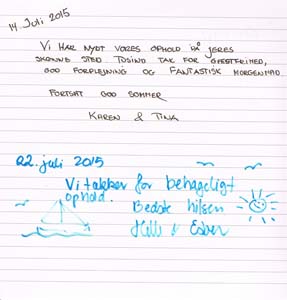 14. Juli 2015
Vi har nydt vores ophold på jeres
skønne sted. Tusind tak for gæstfrihed,
god forplejning og fantastisk morgenmad
Fortsat god sommer
Karen & Tina
22. juli 2015
Vi takker for behageligt
ophold.
Bedste hilsen
Helle & Esben